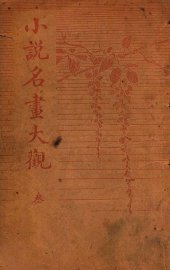 小說名畫大觀
叁